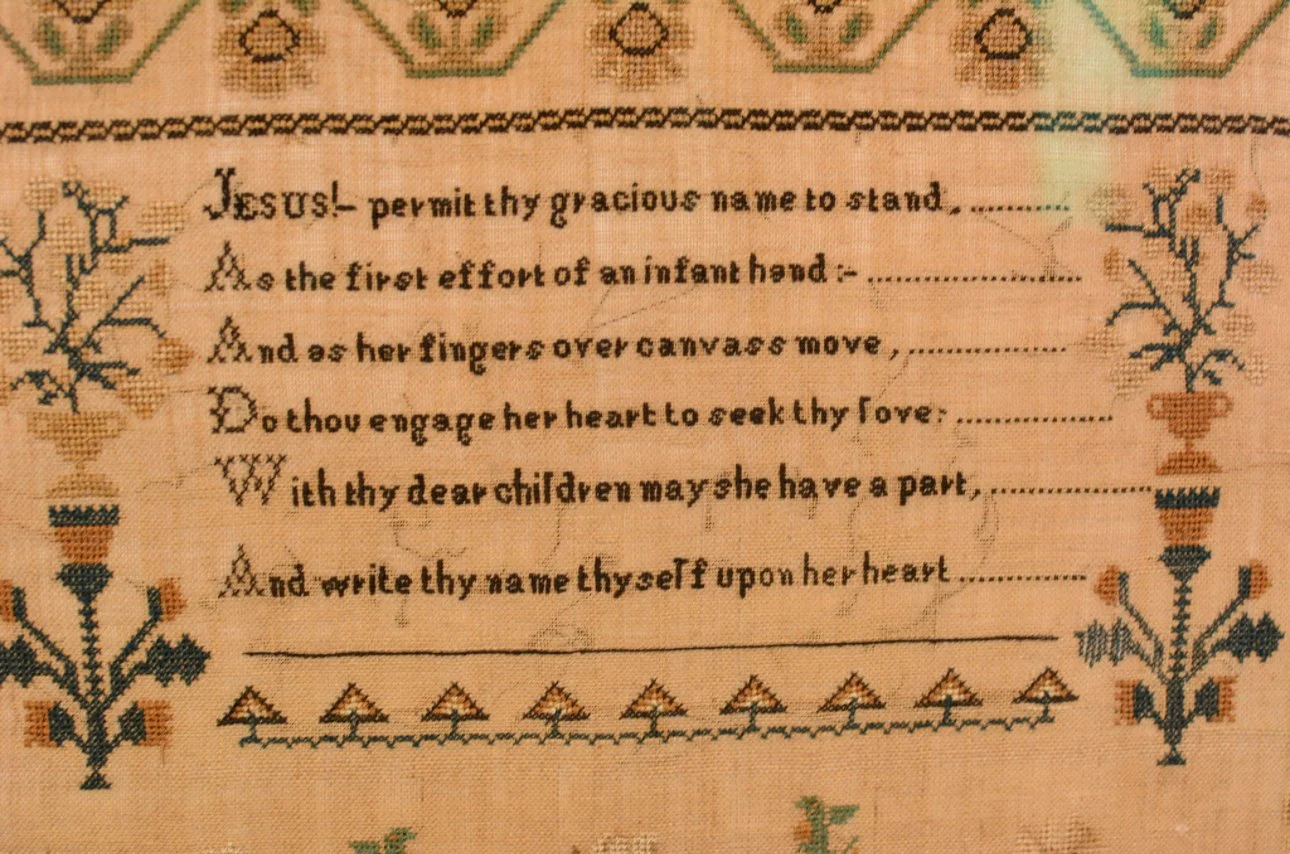 JESUS!- permit thy gracious name to stand, ..........
As the first effort of an infant hand :- ......................
And as her fingers over canvass move , ................
Do thou engage her heart to seek thy love: ................
With thy dear children may she have a part, .................
And write thy name thyself upon her heart .............